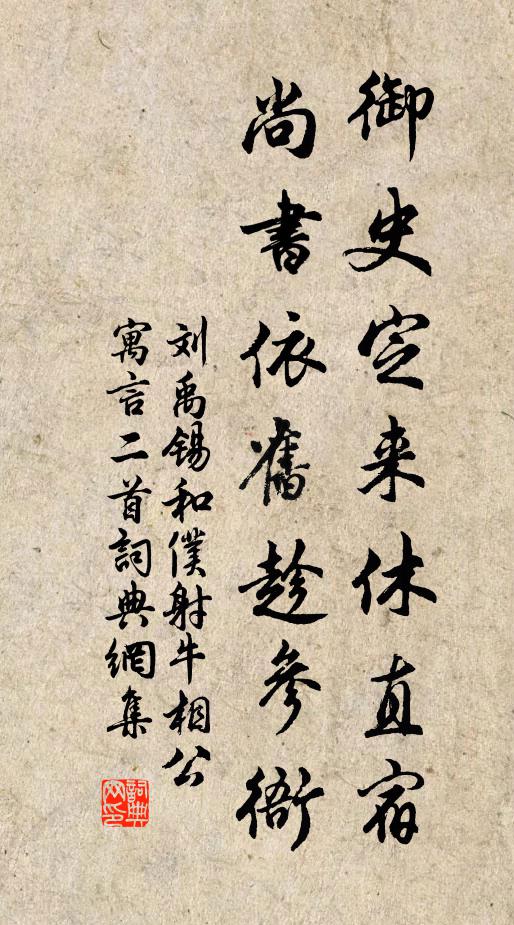 御史定来休直宿
尚書依舊趁參衙
刘禹锡和僕射牛相公
寓言二首詞典網集
詞典网印